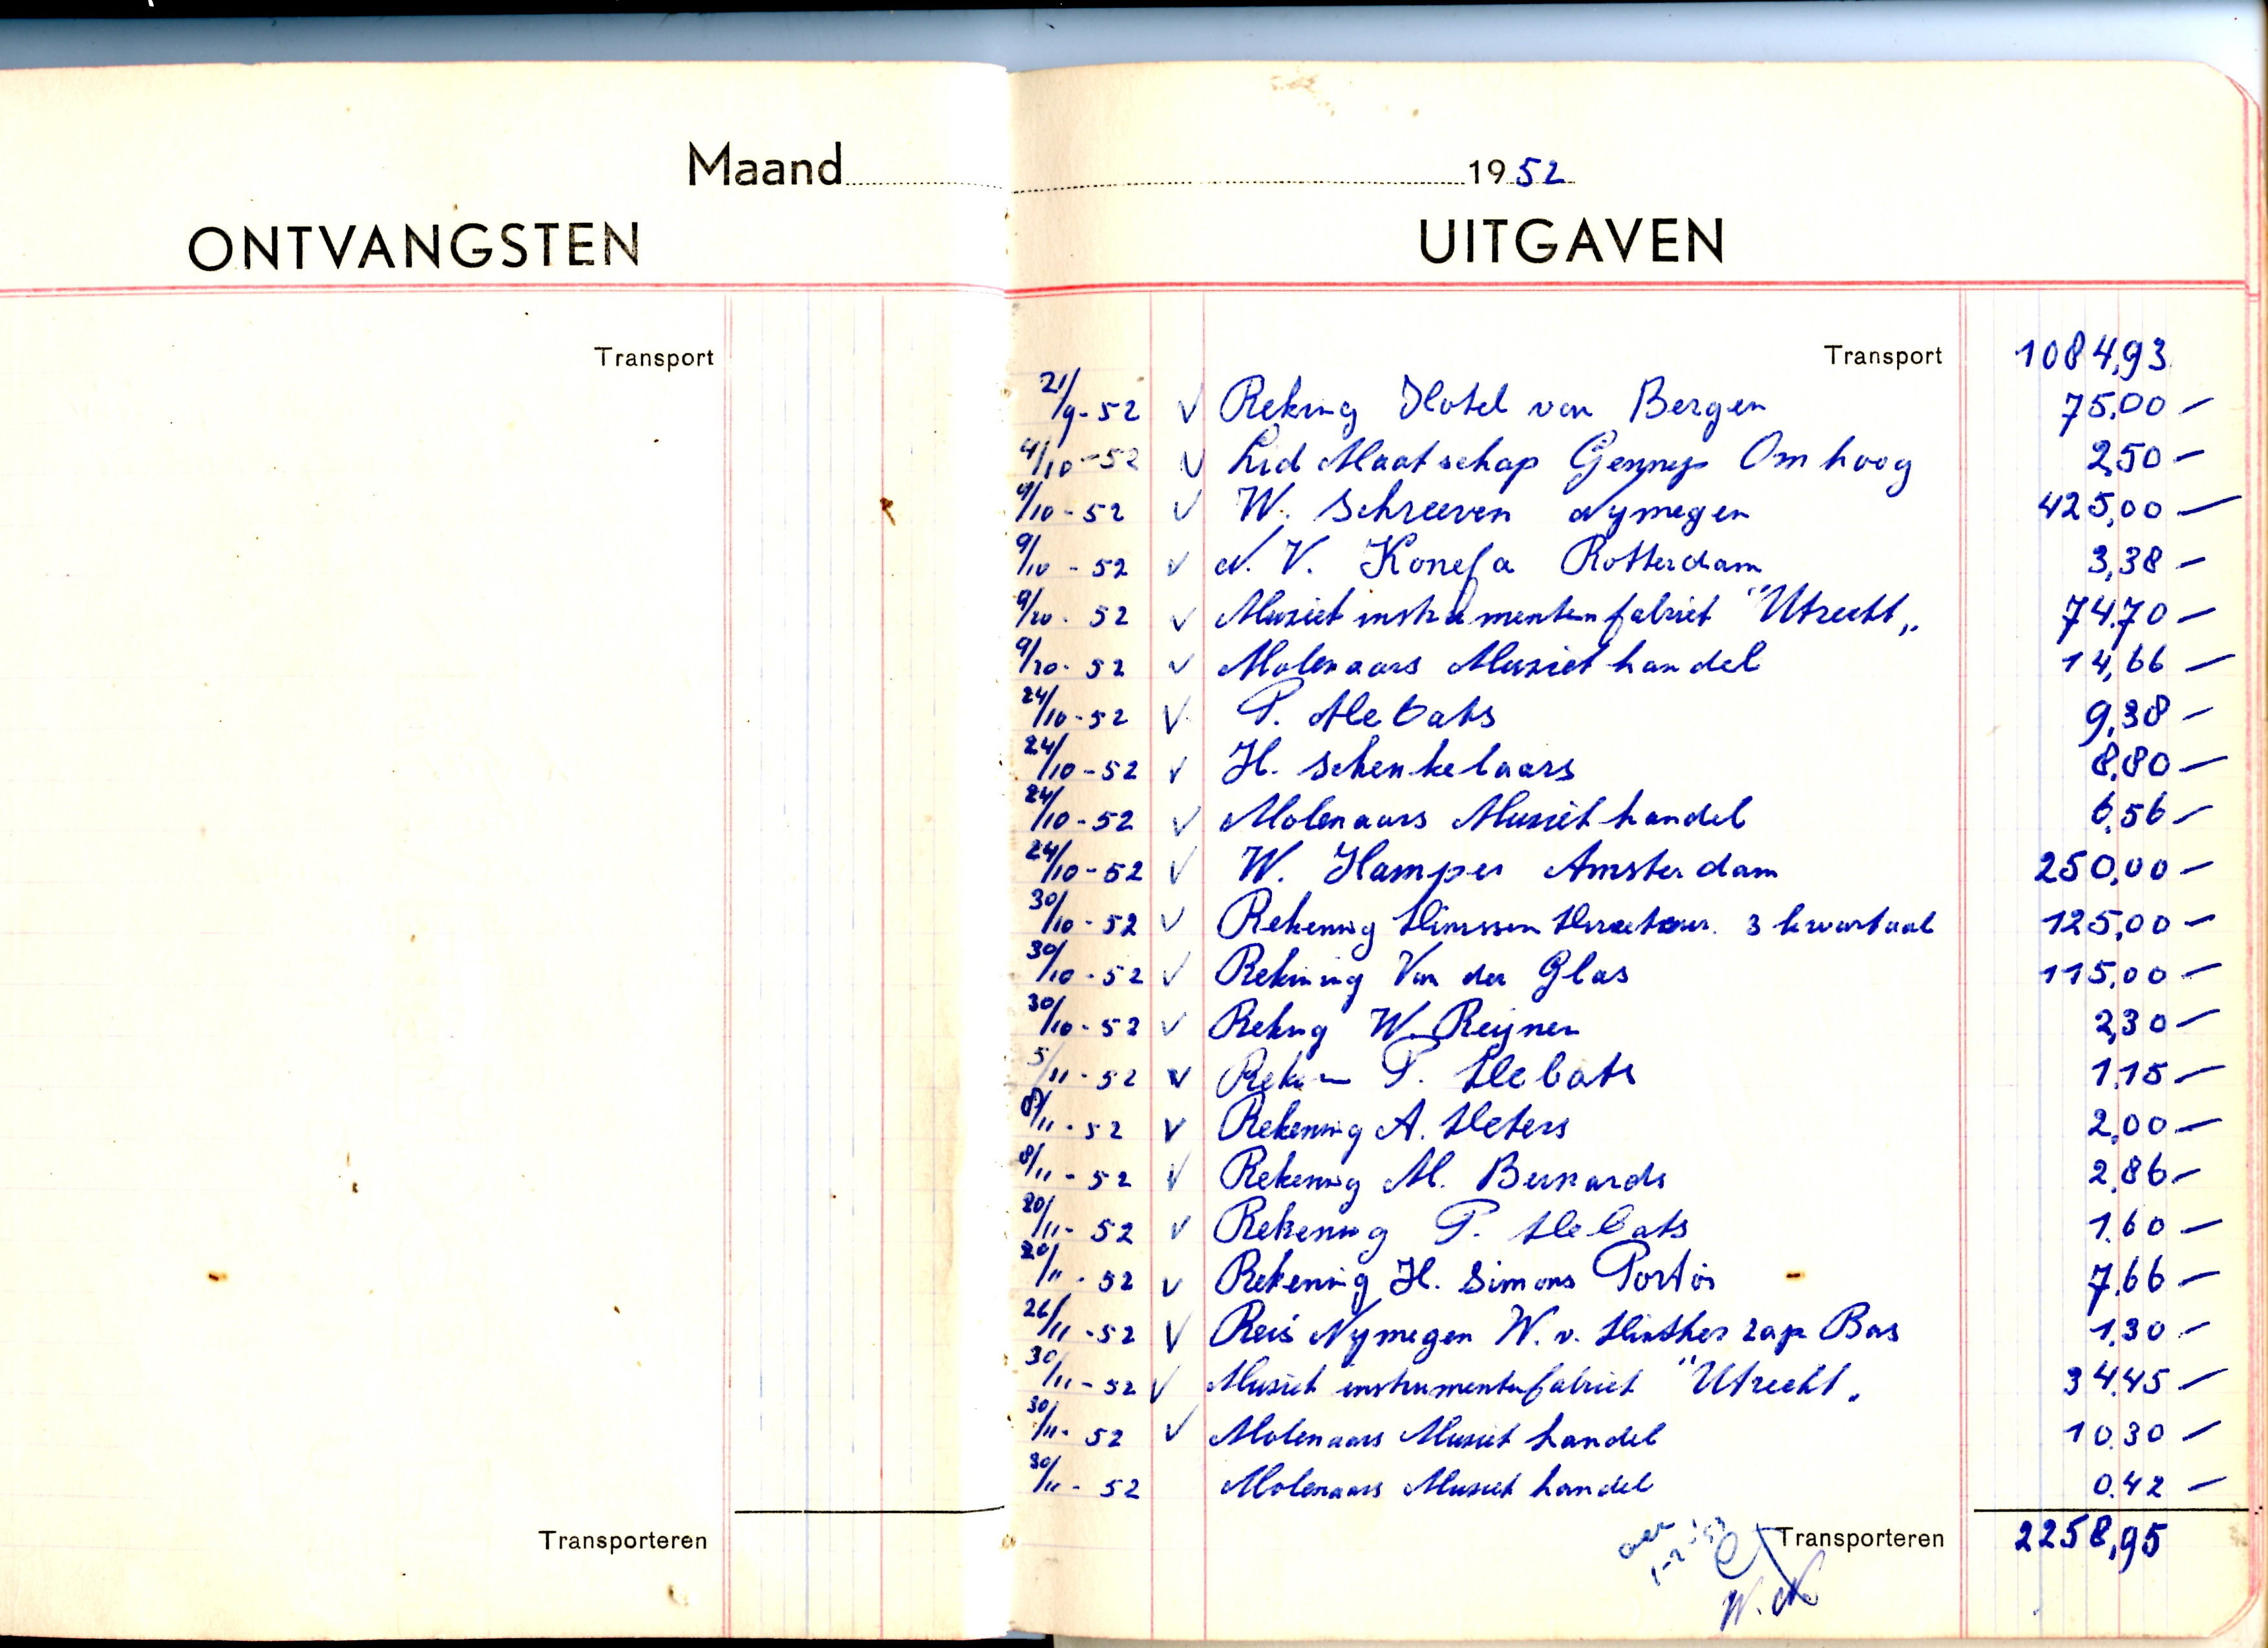 Maand 1952
ONTVANGSTEN
UITGAVEN
Transport
Transport 1084,93
21/9-52 V Rekning Hotel van Bergen 75.00 -
4/10-52 V Lid Maatschap Omhoog 2,50 -
9/10-52 V W. Schreeven Nymegen 425,00 -
9/10-52 V N.V. Konefa Rotterdam 3,38 -
9/10-52 V Muziek instrumentenfabriek "Utrecht„ 74.70 -
9/10-52 V Molenaars Muziekhandel 14,66 -
24/10-52 V P. 9,38 -
24/10-52 V H. Schenkelaars 8.80 -
24/10-52 V Molenaars Muziekhandel 6,56 -
24/10-52 V W. Hamper Amsterdam 250,00 -
30/10-52 V Rekening 3 kwartaal 125,00 -
30/10-52 V Rekening Van der Glas 115,00 -
30/10-52 V Rekng W. Reijnen 2,30 -
5/11-52 V P. 1.15 -
8/11-52 V Rekening A. 2,00 -
8/11-52 V Rekening M. 2.86 -
20/11-52 V Rekening P. 1.60 -
20/11-52 V Rekening H. Simons Porto's 7.66 -
26/11-52 V Reis Nymegen W. v. Bas 1,30 -
30/11-52 V Muziek instrumentenfabriek "Utrecht„ 34.45 -
30/11-52 V Molenaars Muziek handel 10.30 -
30/11-52 Molenaars Muziek handel 0.42 -
Transporteren
Transporteren 2258,95